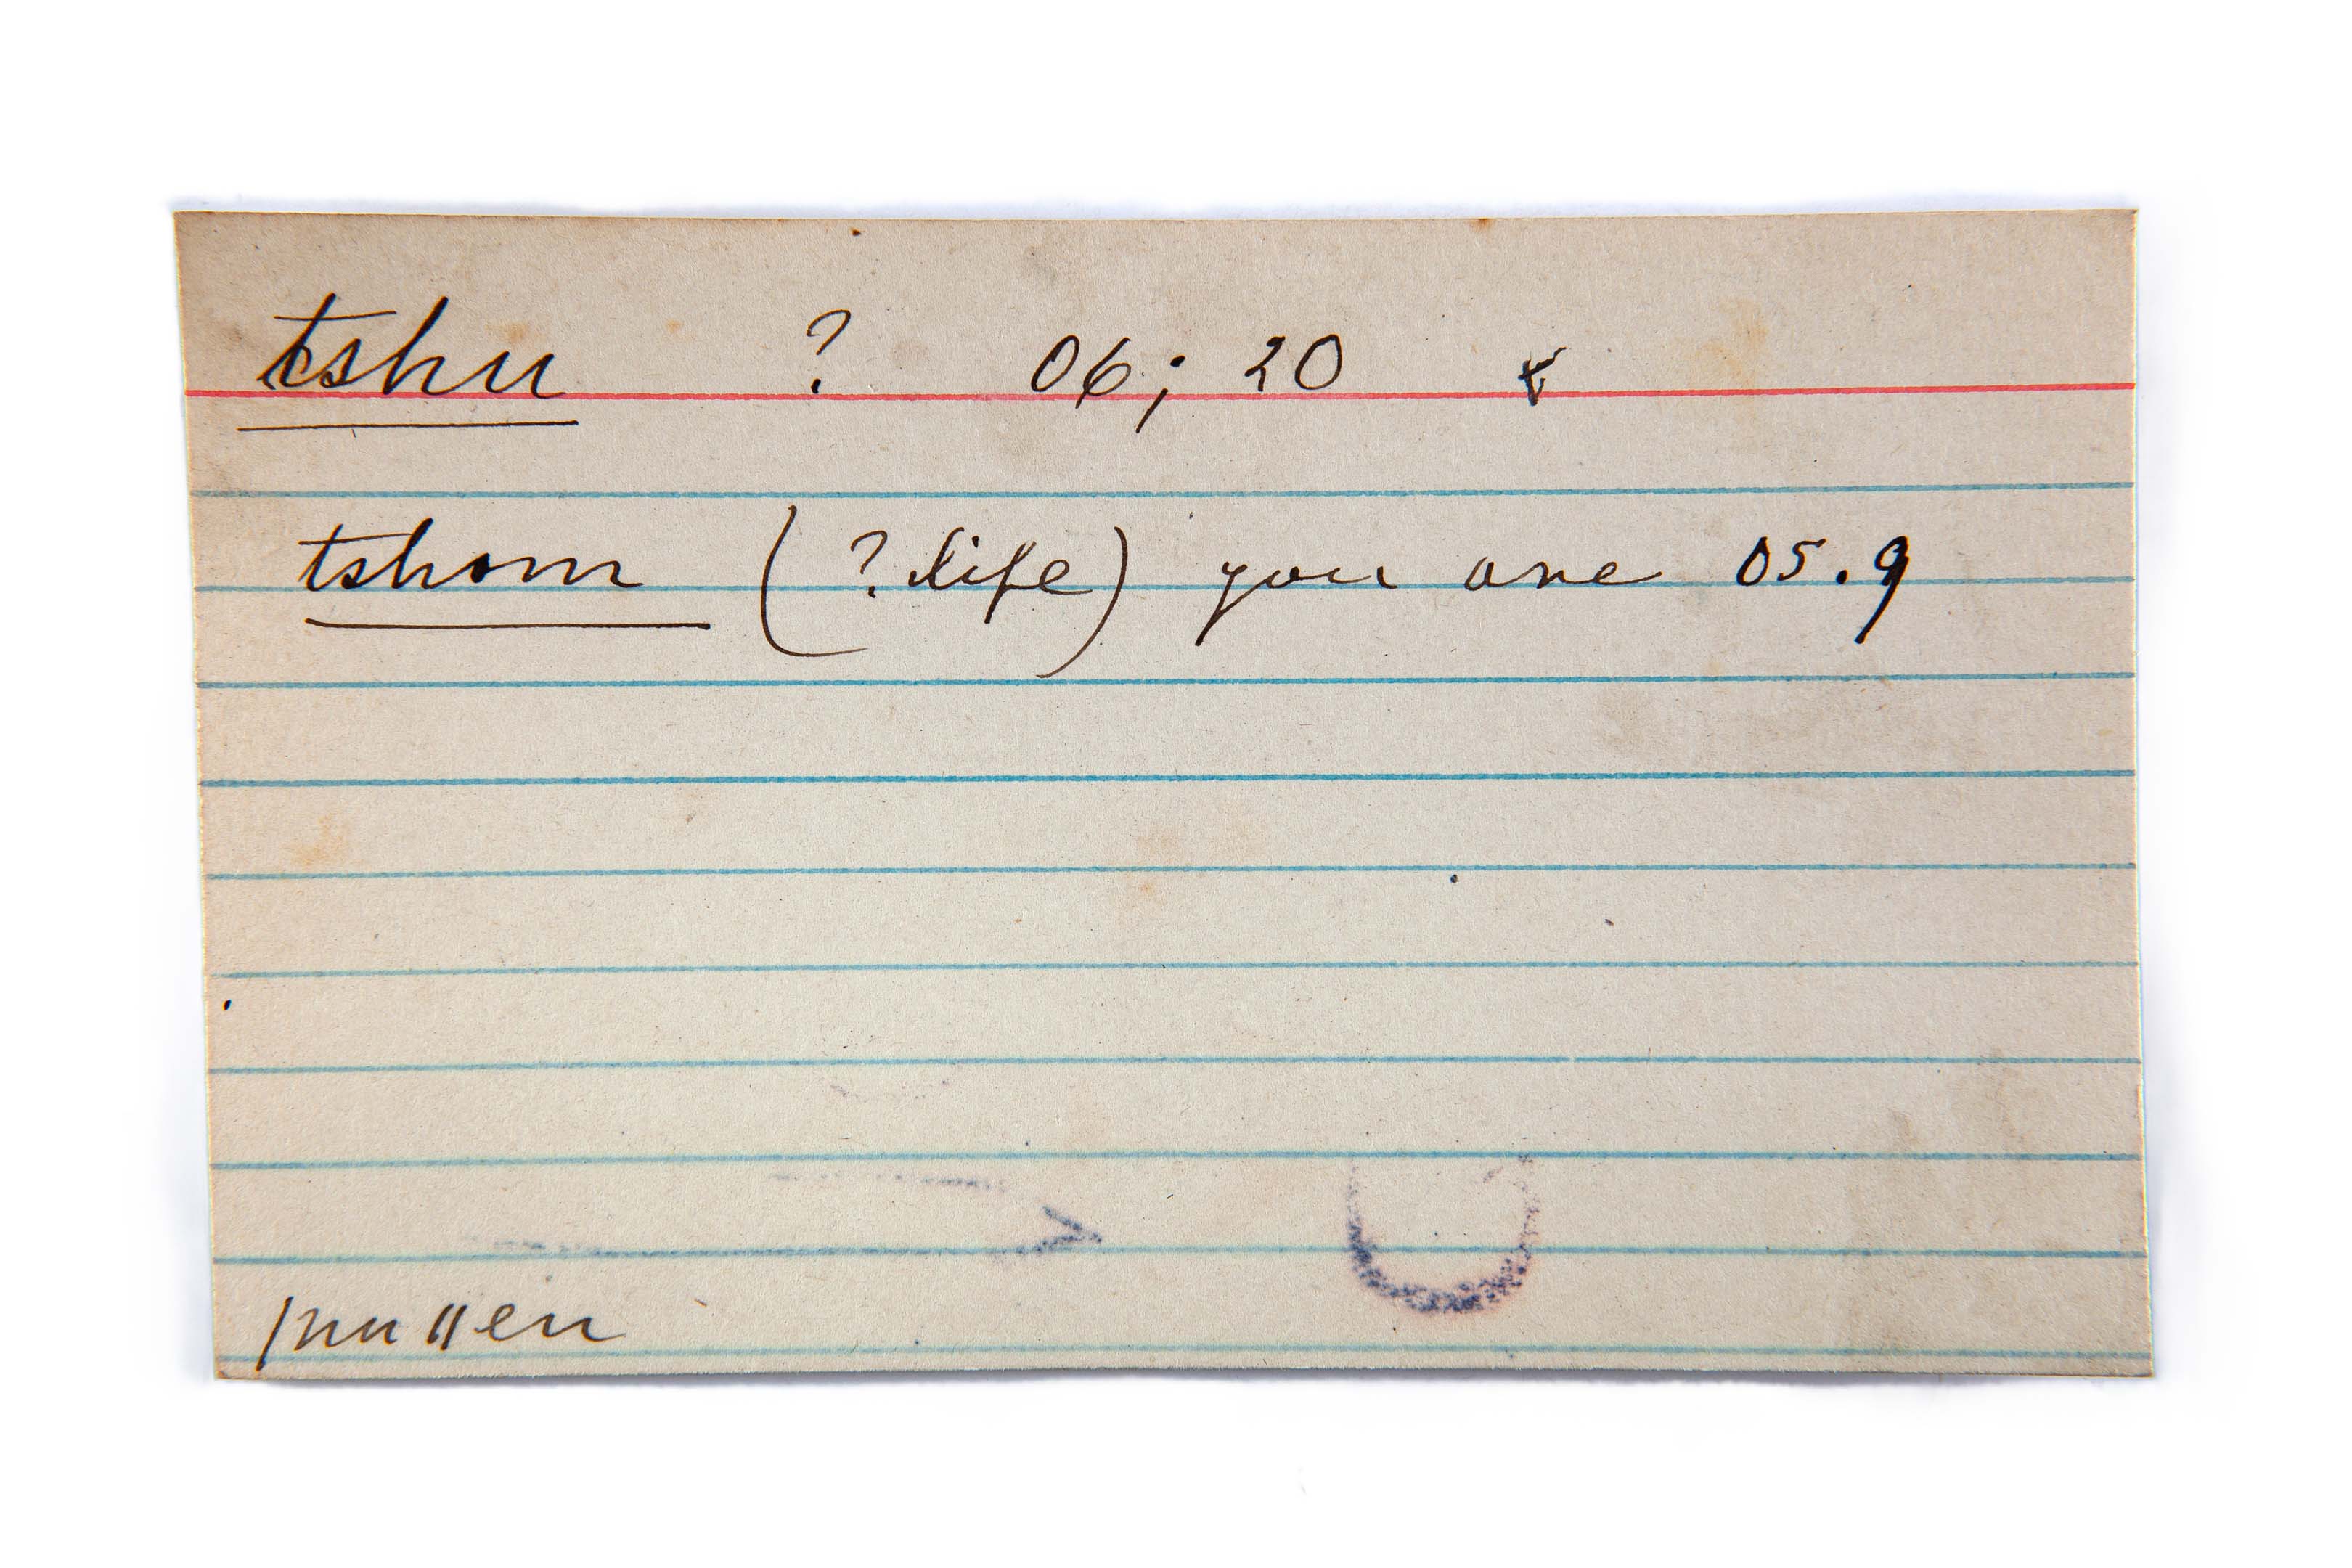 tshu ? 06; 20
tshom (?life) you are 05.9